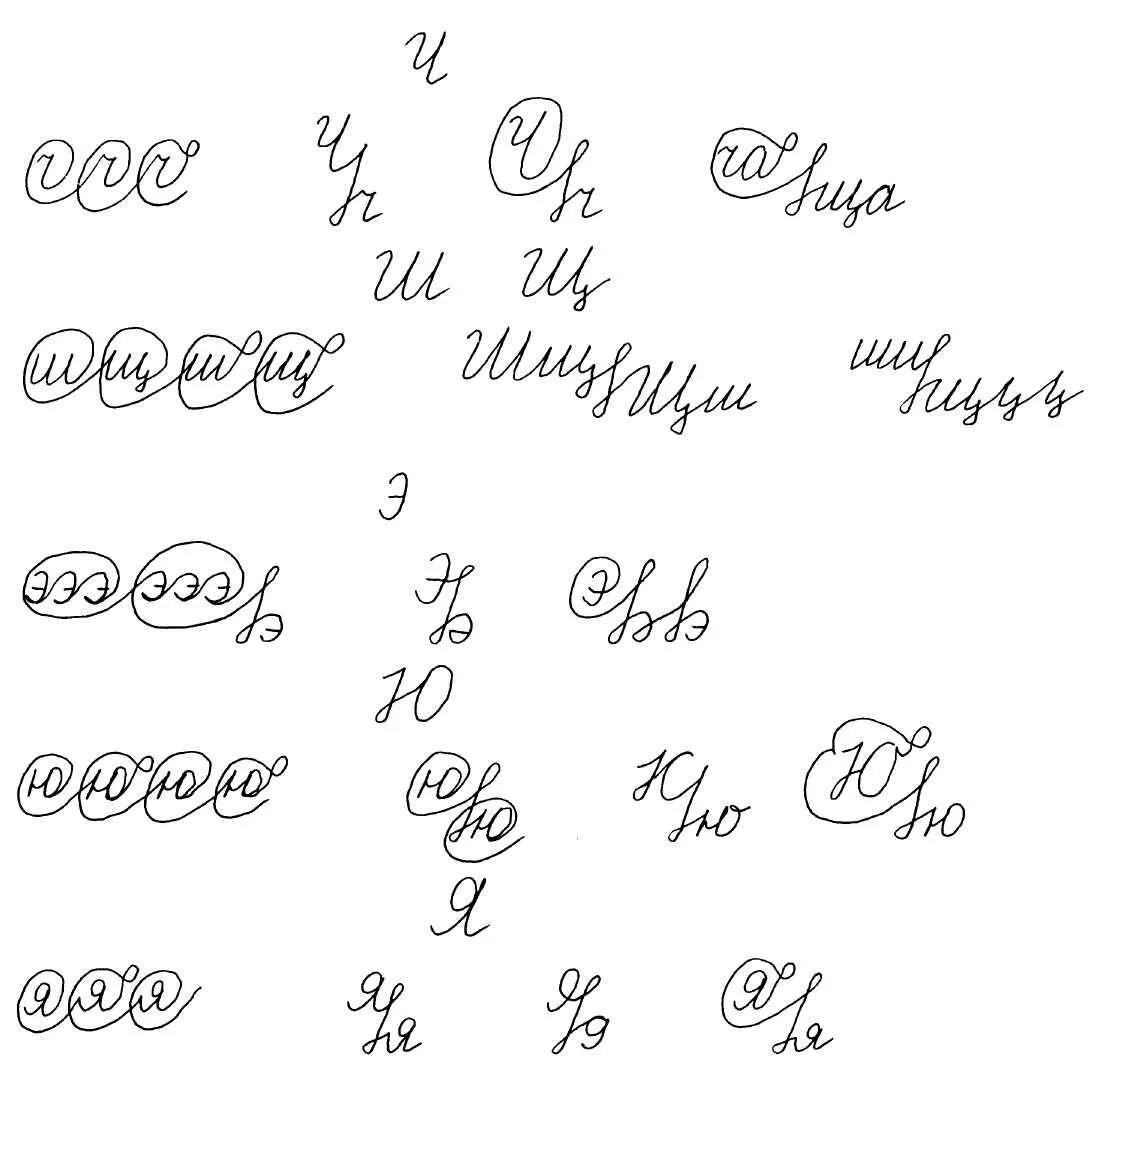 Ч
ч ч ч Ч ч Ч ч ча ща
Ш Щ
ш щ ш щ Шщ Щш шц щцц
Э
эээ эээ э Э э Э э э
Ю
ю ю ю ю ю ю Ю ю Ю ю
Я
я я я Я я Я я Я я